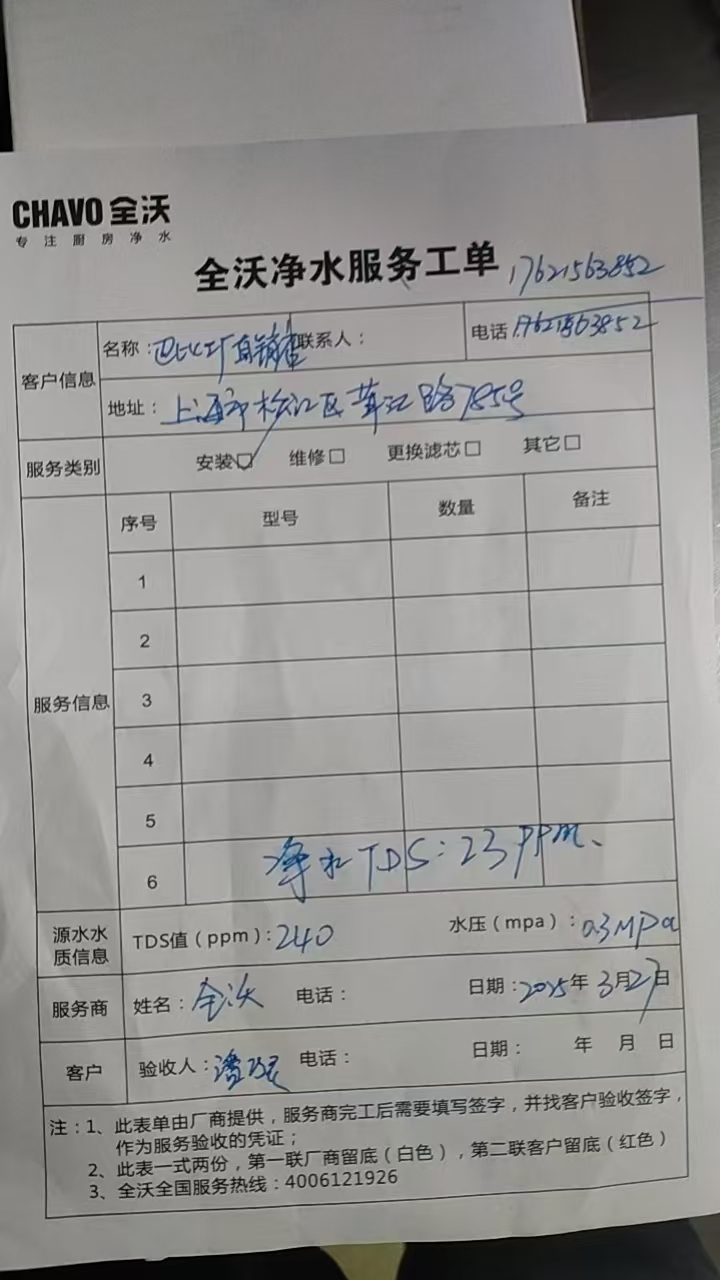 CHAVO 全沃
专注厨房净水
全沃净水服务工单 17621563852
客户信息 名称: 工厂直销店 联系人: 电话 17621563852
地址: 上海市松江区茸江路785号
服务类别 安装☑ 维修□ 更换滤芯□ 其它□
服务信息 序号 型号 数量 备注
1
2
3
4
5
6 净水TDS:23ppm、
源水水质信息 TDS值(ppm):240 水压(mpa):0.3MPa
服务商 姓名:全沃 电话: 日期:2025年3月27日
客户 验收人:潘 电话: 日期: 年 月 日
注:1、此表单由厂商提供,服务商完工后需要填写签字,并找客户验收签字,
作为服务验收的凭证;
2、此表一式两份,第一联厂商留底(白色),第二联客户留底(红色)
3、全沃全国服务热线:4006121926